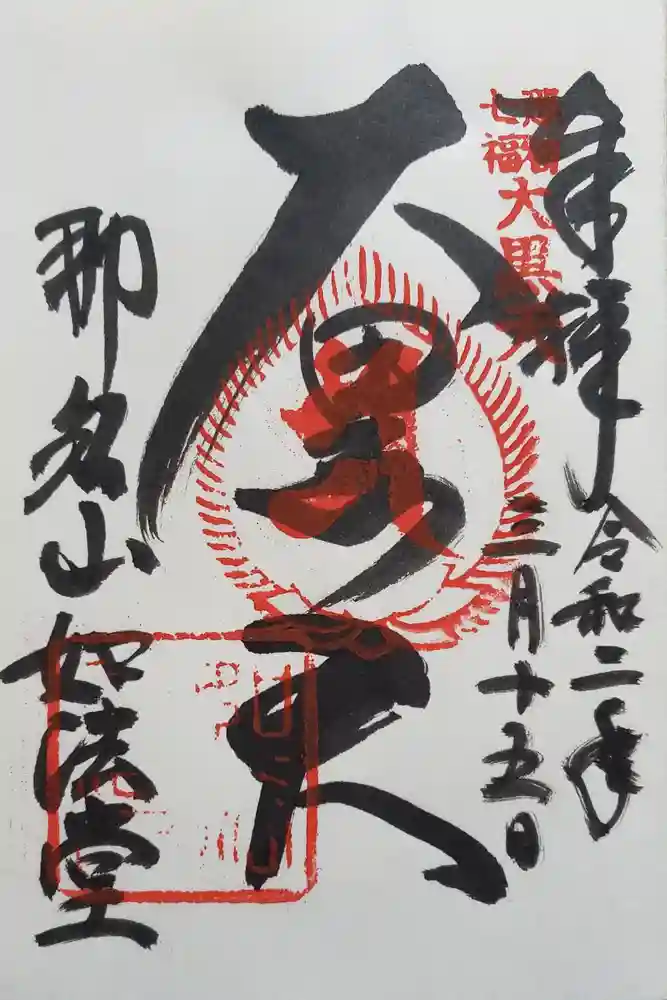 奉拝 令和二年
三月十五日
七福
大黒天
大黒天
那名山 如法堂